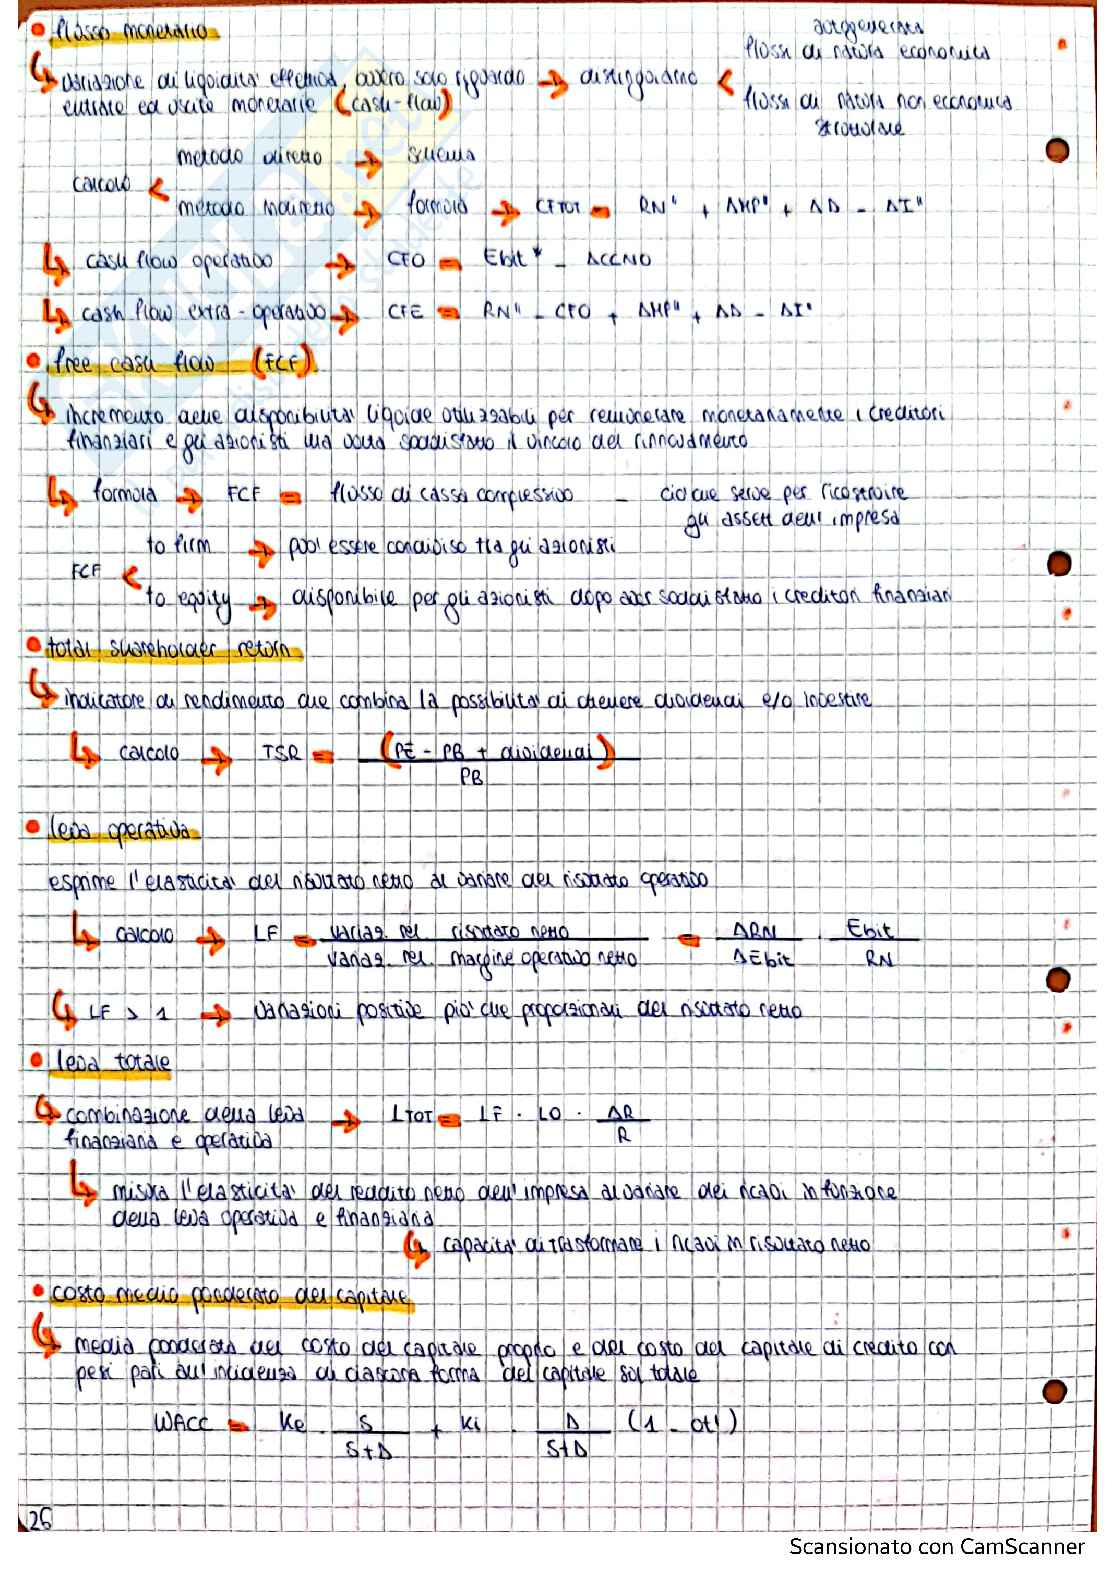 flusso monetario
autogenerata
flussi di natura economica
variazione di liquidità effettiva, ovvero solo riguardo → distinguiamo <
entrate ed uscite monetarie (cash-flow)
flussi di natura non economica
strutturale
metodo diretto → schema
calcolo <
metodo indiretto → formula → CFTOT = RN" + ΔMP" + ΔD - ΔI"
cash flow operativo → CFO = Ebit* - ΔCCNO
cash flow extra-operativo → CFE = RN" - CFO + ΔMP" + ΔD - ΔI"
free cash flow (FCF)
incremento delle disponibilità liquide utilizzabili per remunerare monetariamente i creditori
finanziari e gli azionisti una volta soddisfatto il vincolo del rinnovamento
formula → FCF = flusso di cassa complessivo - ciò che serve per ricostruire
gli assett dell'impresa
to firm → può essere condiviso tra gli azionisti
FCF <
to equity → disponibile per gli azionisti dopo aver soddisfatto i creditori finanziari
total shareholder return
indicatore di rendimento che combina la possibilità di ottenere dividendi e/o investire
calcolo → TSR = (PE - PB + dividendi)
PB
leva operativa
esprime l'elasticità del risultato netto al variare del risultato operativo
calcolo → LF = variaz. rel. risultato netto = ΔRN · Ebit
variaz. rel. margine operativo netto ΔEbit RN
LF > 1 → variazioni positive più che proporzionali del risultato netto
leva totale
combinazione della leva → LTOT = LF · LO · ΔR
finanziaria e operativa R
misura l'elasticità del reddito netto dell'impresa al variare dei ricavi in funzione
della leva operativa e finanziaria
capacità di trasformare i ricavi in risultato netto
costo medio ponderato del capitale
media ponderata del costo del capitale proprio e del costo del capitale di credito con
pesi pari all'incidenza di ciascuna forma del capitale sul totale
WACC = Ke · S + Ki · D (1 - at')
S+D S+D
26
Scansionato con CamScanner